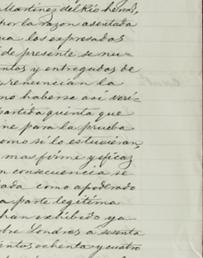 Martinez del Rio hermo
por la razon asentada
las expresadas
de presente se
y entregados de
renuncian la
no haberse asi
partida quinta que
para la prueba
como si lo estuvieran
mas firme y eficaz
consecuencia se
como apoderado
parte legitima
han exhibido ya
Londres a
ochenta y cuatro